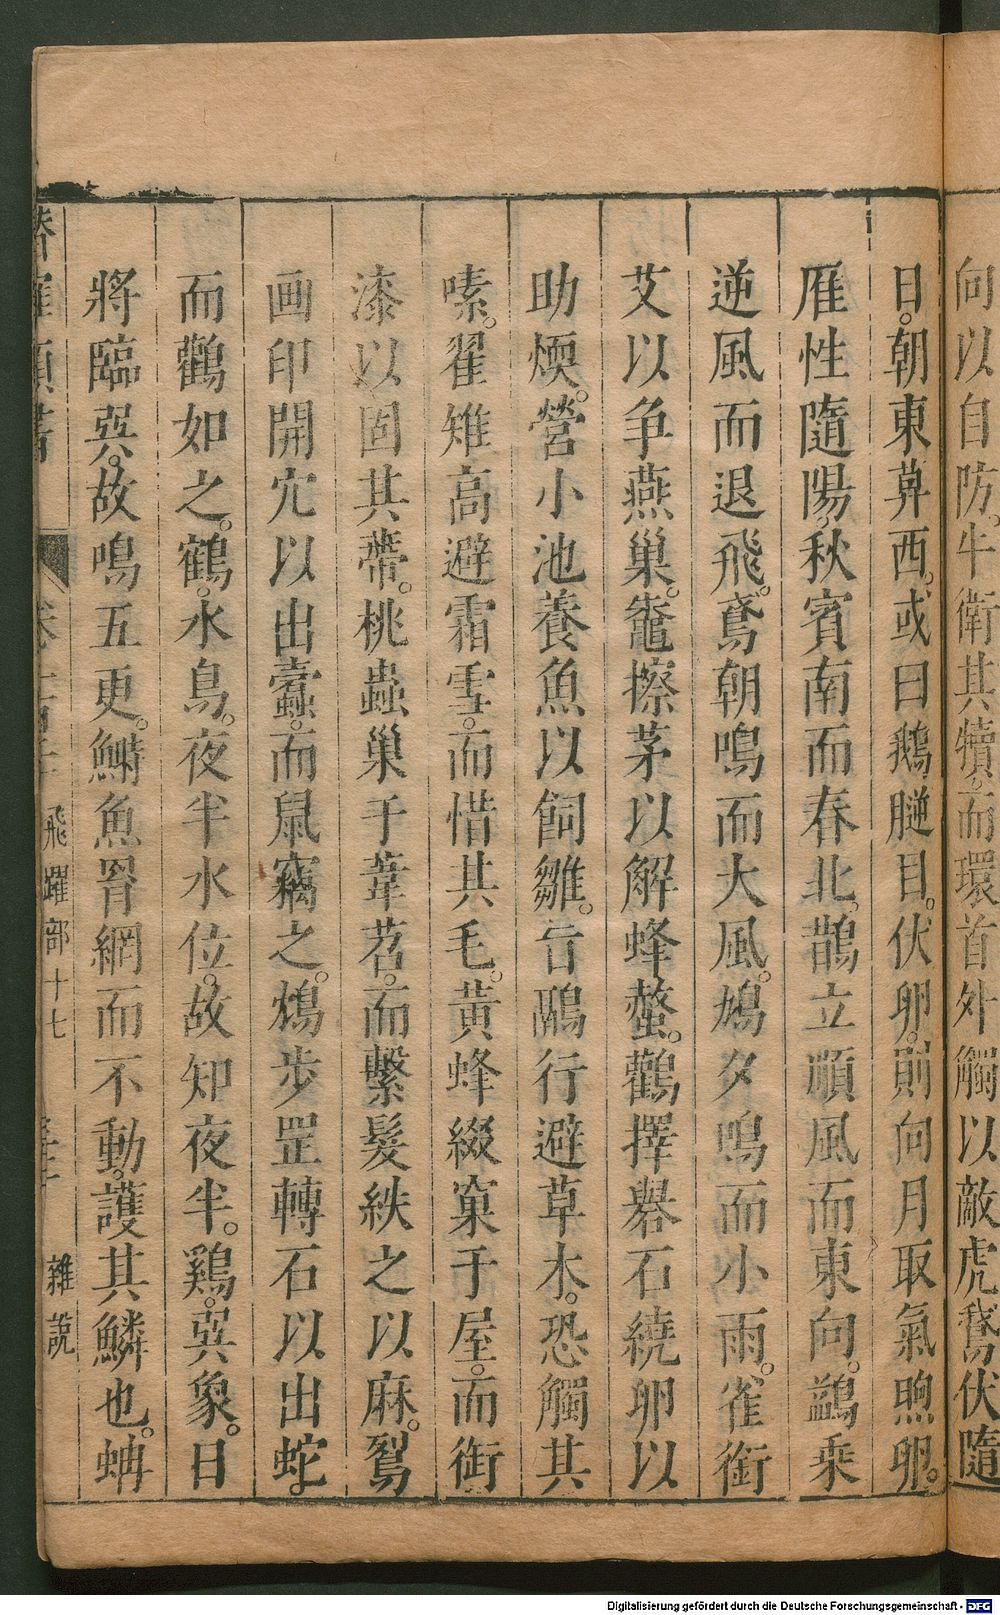 向以自防。牛衛其犢。而環首外觸以敵虎。鵞伏隨
日。朝東莫西。或曰鵝腿目。伏卵。則向月取氣煦卵。
雁性隨陽。秋賓南而春北。鵲立順風而東向。鷁乘
逆風而退飛。鳶朝鳴而大風。鳩夕鳴而小雨。雀銜
艾以争燕巢。竈擦茅以解蜂螫。鸛擇礜石繞卵以
助煗。營小池養魚以飼雛。旨鷊行避草木。恐觸其
嗉。翟雉高避霜雪。而惜其毛。黃蜂綴窠于屋。而銜
漆以固其蔕。桃蟲巢于葦苕。而繫髮紩之以麻。鴷
画印開穴以出蠹。而鼠竊之。鴆步罡轉石以出蛇。
而鸛如之。鶴。水鳥。夜半水位。故知夜半。鷄。巽象。日
將臨巽。故鳴五更。鰣魚罥網而不動。護其鱗也。蚺
類書
飛躍部十七
雜說
Digitalisierung gefördert durch die Deutsche Forschungsgemeinschaft - DFG